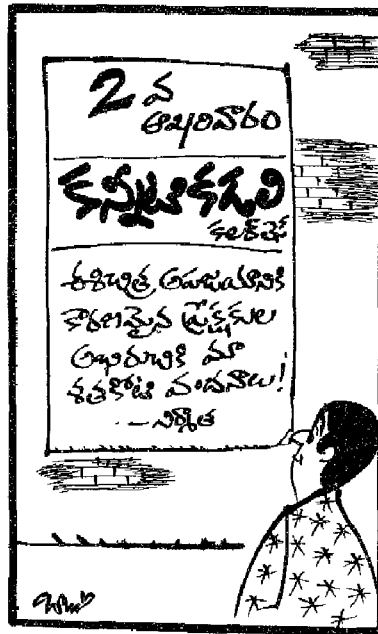 2 వ
ఆఖరివారం
కన్నీటికడలి
కలెక్షన్
ఈచిత్ర అపజయానికి
కారణమైన ప్రేక్షకుల
అభిరుచికి మా
శతకోటి వందనాలు!
- నిర్మాత